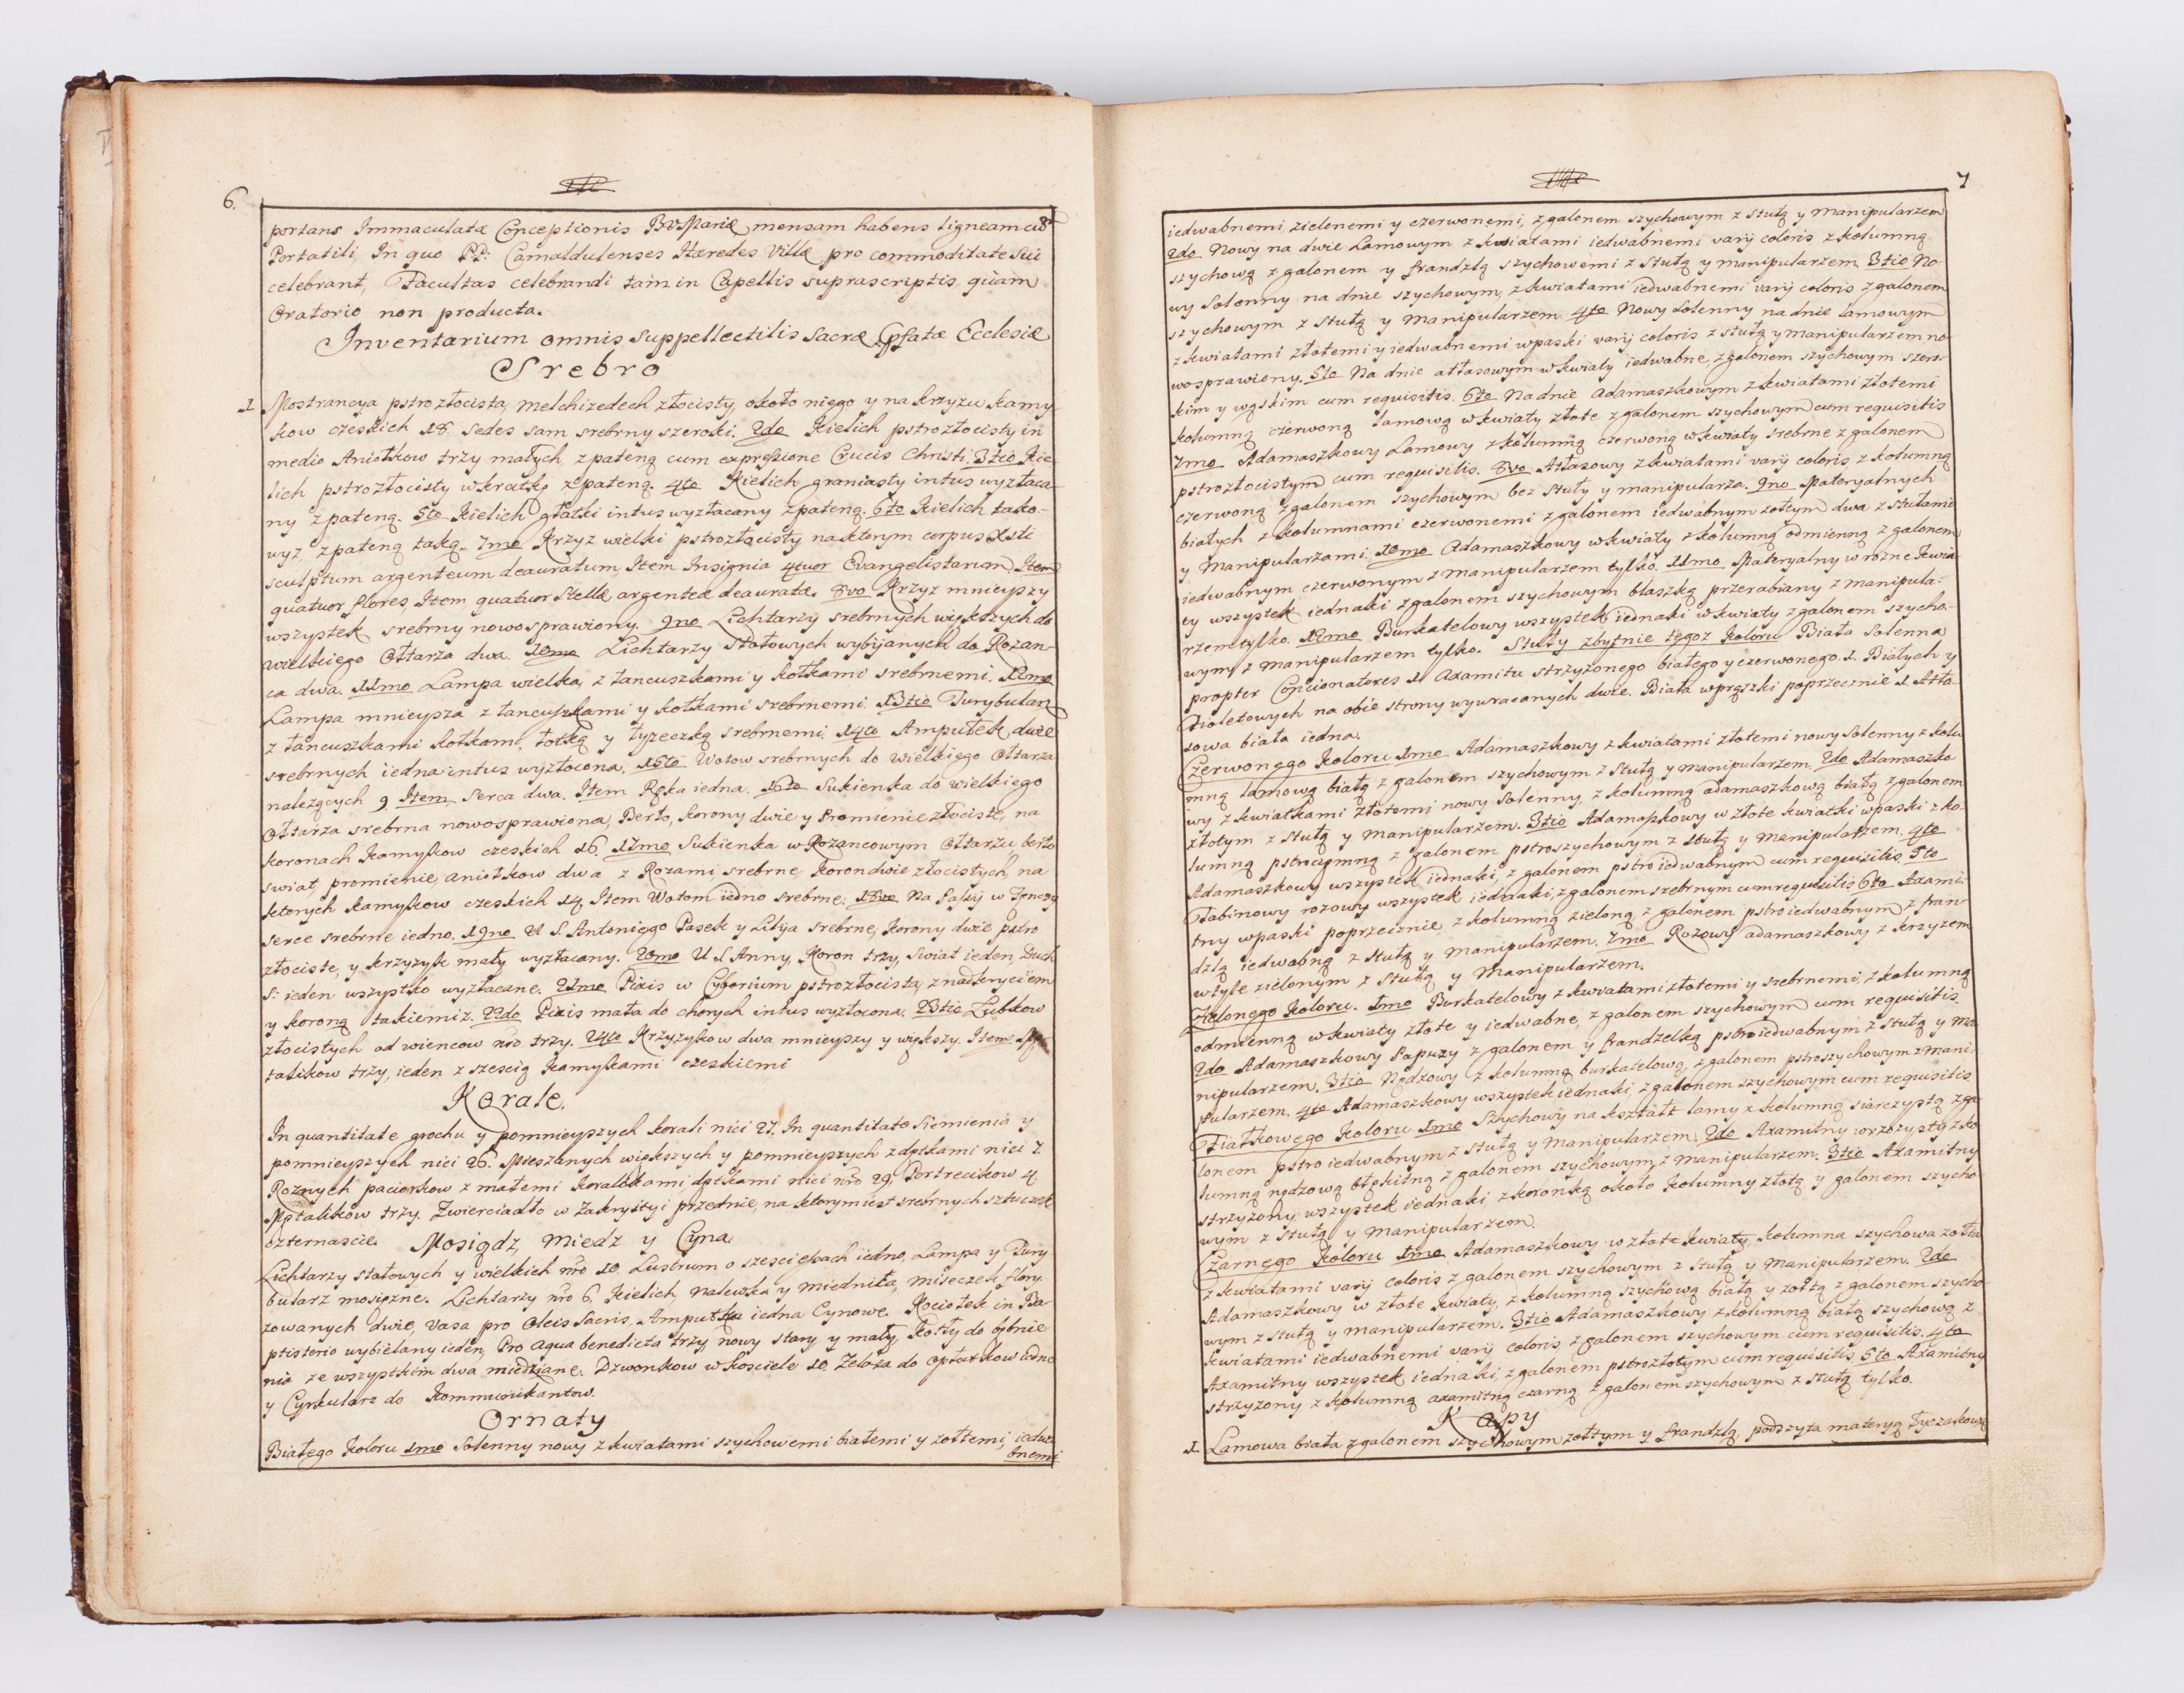 6.
portans Immaculatæ Conceptionis BV Mariæ mensam habens ligneam cum
Portatili, In quo PP: Camaldulenses Hæredes Villæ pro commoditate sui
celebrant, Facultas celebrandi tàm in Capellis suprascriptis, quàm
Oratorio non producta.
Inventarium omnis Suppellectilis Sacræ Epfatæ Ecclesiæ
Srebro
1. Mostrancya pstrozłocista, Melchizedech złocisty, około niego y na krzyzu kamy
kow czeskich 18. Sedes sam srebrny szeroki. 2do Kielich pstrozłocisty in
medio Aniołkow trzy małych, z pateną cum expressione Crucis Christi. 3tio Kie
lich pstrozłocisty w kratkę z pateną. 4to Kielich graniasty intus wyzłaca
ny z pateną. 5to Kielich gładki intus wyzłacany z pateną. 6to Kielich tako-
wyz z pateną taką. 7mo Krzyz wielki pstrozłocisty na ktorym corpus Xsti
sculptum argenteum deauratum, Item Insignia 4tuor Evangelistarum, Item
quatuor flores, Item quatuor Stellæ argenteæ deauratæ. 8vo Krzyz mnieyszy
wszystek srebrny nowo sprawiony. 9no Lichtarzy srebrnych większych do
wielkiego Ołtarza dwa. 10mo Lichtarzy Stołowych wybijanych do Rozan-
ca dwa. 11mo Lampa wielka, z łancuszkami y kołkami srebrnemi. 12mo
Lampa mnieysza z łancuszkami y kołkami srebrnemi. 13tio Turybularz
z łancuszkami kołkami, łotką y łyzeczką srebrnemi. 14to Ampułek dwie
srebrnych iedna intus wyzłocona. 15to Wotow srebrnych do Wielkiego Ołtarza
nalezących 9 Item Serca dwa. Item Ręka iedna. 16to Sukienka do wielkiego
Ołtarza srebrna nowosprawiona, Berło, Korony dwie y Promienie złociste, na
koronach Kamyskow czeskich 16. 17mo Sukienka w Rozancowym Ołtarzu, berło
swiat, promienie, aniołkow dwa z Rozami srebrne, koron dwie złocistych, na
ktorych kamyskow czeskich 14. Item Wotom iedno srebrne. 18vo Na Pasyi w Tęnczy
serce srebrne iedno. 19no U S. Antoniego Pasek y Lilija srebrne, Korony dwie pstro
złociste, y krzyzyk mały wyzłacany. 20mo U S Anny, Koron trzy, Swiat ieden, Duch
S: ieden wszystko wyzłacane. 21mo Pixis w Cyborium pstrozłocista z nadkryciem
y koroną takiemiz. 22do Pixis mała do chorych intus wyzłocona. 23tio Lubkow
złocistych od wiencow nro trzy. 24to Krzyzykow dwa mnieyszy y wyksszy. Item Mę
talikow trzy, ieden z szescią kamyskami czeskiemi
Korale.
In quantitate grochu y pomnieyszych korali nici 27. In quantitate Siemienia y
pomnieyszych nici 26. Mieszanych większych y pomnieyszych z dętkami nici 7.
Roznych paciorkow z małemi koralikami, dętkami nici nro 29. Portrecikow 4
Mętalikow trzy. Zwierciadło w Zakrystyi przednie, na ktorym iest srebrnych sztuczek
czternascie. Mosiądz, Miedz y Cyna
Lichtarzy stołowych y wielkich nro 10. Lustrum o szesciękach iedno, Lampa y Tury
bularz mosięzne. Lichtarzy nro 6. Kielich, nalewka y miednica, miseczek flory
zowanych dwie, Vasa pro Oleis Sacris, Ampułka iedna Cynowe. Kociołek in Ba
ptisterio wybielany ieden, Pro aqua benedicta trzy, nowy stary y mały, Kotły do bębnie
nia ze wszystkim dwa miedziane. Dzwonkow w kosciele 10. Zelaza do opłatkow iedno
y Cyrkularz do Kommunikantow.
Ornaty
Białego Koloru 1mo Solenny nowy z kwiatami szychowemi białemi y zołtemi, iedwa
bnemi
7
iedwabnemi, zielonemi y czerwonemi, z galonem szychowym z Stułą y Manipularzem
2do Nowy na dnie Lamowym z kwiatami iedwabnemi varij coloris z kolumną
szychową z galonem y frandzlą szychowemi z Stułą y manipularzem. 3tio No-
wy Solenny na dnie szychowym, z kwiatami iedwabnemi varij coloris z galonem
szychowym z Stułą y Manipularzem. 4to Nowy Solenny na dnie lamowym
z kwiatami złotemi y iedwabnemi w paski varij coloris z stułą y manipularzem no
wo sprawiony. 5to Na dnie atłasowym w kwiaty iedwabne, z galonem szychowym szero-
kim y wąskim cum requisitis. 6to Na dnie Adamaszkowym z kwiatami złotemi
kolumną czerwoną lamową w kwiaty złote z galonem szychowym cum requisitis
7mo Adamaszkowy Lamowy z kolumną czerwoną w kwiaty srebrne z galonem
pstrozłocistym cum requisitis. 8vo Atłasowy z kwiatami varij coloris z kolumną
czerwoną z galonem szychowym bez Stuły y manipularza. 9no Materyalnych
białych z kolumnami czerwonemi z galonem iedwabnym zołtym dwa z stułami
y Manipularzami. 10mo Adamaszkowy w kwiaty z kolumną odmienną z galonem
iedwabnym czerwonym z manipularzem tylko. 11mo Materyalny w rozne Kwia
ty wszystek iednaki z galonem szychowym blaszką przerabiany, z manipula-
rzem tylko. 12mo Burkatelowy wszystek iednaki w kwiaty z galonem szycho-
wym z manipularzem tylko. Stuły zbytnie tegoz Koloru Biała Solenna
propter Concionatores 1. Axamitu strzyzonego białego y czerwonego 1. Białych y
Fioletowych na obie strony wywracanych dwie. Biała w prąszki poprzecznie 1. Atła-
sowa biała iedna.
Czerwonego Koloru 1mo Adamaszkowy z kwiatami złotemi nowy Solenny z kolu
mną lamową białą z galonem szychowym z Stułą y manipularzem. 2do Adamaszko
wy z kwiatkami złotemi nowy Solenny, z kolumną adamaszkową białą z galonem
złotym z stułą y manipularzem. 3tio Adamaszkowy w złote kwiatki w paski z ko-
lumną pstrociemną z galonem pstroszychowym z Stułą y Manipularzem. 4to
Adamaszkowy wszystek iednaki, z galonem pstro iedwabnym cum requisitis 5to
Tabinowy rozowy wszystek iednaki, z galonem srebrnym cum requisitis 6to Axami-
tny w paski poprzecznie, z kolumną zieloną z galonem pstroiedwabnym z fran-
dzlą iedwabną z stułą y manipularzem. 7mo Rozowy adamaszkowy z krzyzem
w tyle zielonym z Stułą y Manipularzem.
Zielonego Koloru. 1mo Burkatelowy z kwiatami złotemi y srebrnemi, z kolumną
odmienną w kwiaty złote y iedwabne, z galonem szychowym cum requisitis.
2do Adamaszkowy Papuzy z galonem y frandzelką pstroiedwabnym z Stułą y Ma
nipularzem. 3tio Nędzowy z kolumną burkatelową, z galonem pstroszychowym z Mani-
pularzem. 4to Adamaszkowy wszystek iednaki, z galonem szychowym cum requisitis
Fiałkowego Koloru 1mo Szychowy na kształt lamy z kolumną siarczystą z ga
lonem pstro iedwabnym z stułą y manipularzem. 2do Axamitny wzorzysty z ko
lumną nędzową błękitną z galonem szychowym, z manipularzem. 3tio Axamitny
strzyzony, wszystek iednaki, z koronką około Kolumny złotą y galonem szycho
wym z Stułą y Manipularzem.
Czarnego Koloru 1mo Adamaszkowy w złote kwiaty, kolumna szychowa zołta
z kwiatami varij coloris z galonem szychowym z stułą y manipularzem. 2do
Adamaszkowy w złote kwiaty, z kolumną szychową białą y zołtą z galonem szycho-
wym z stułą y manipularzem. 3tio Adamaszkowy z kolumną białą szychową z
kwiatami iedwabnemi varij coloris, z galonem szychowym cum requisitis. 4to
Axamitny wszystek iednaki, z galonem pstrozłotym cum requisitis. 5to Axamitny
strzyzony z kolumną axamitną czarną z galonem szychowym z stułą tylko.
Kapy
1. Lamowa biała z galonem szychowym zołtym y frandzlą, podszyta materyą Tyczakową